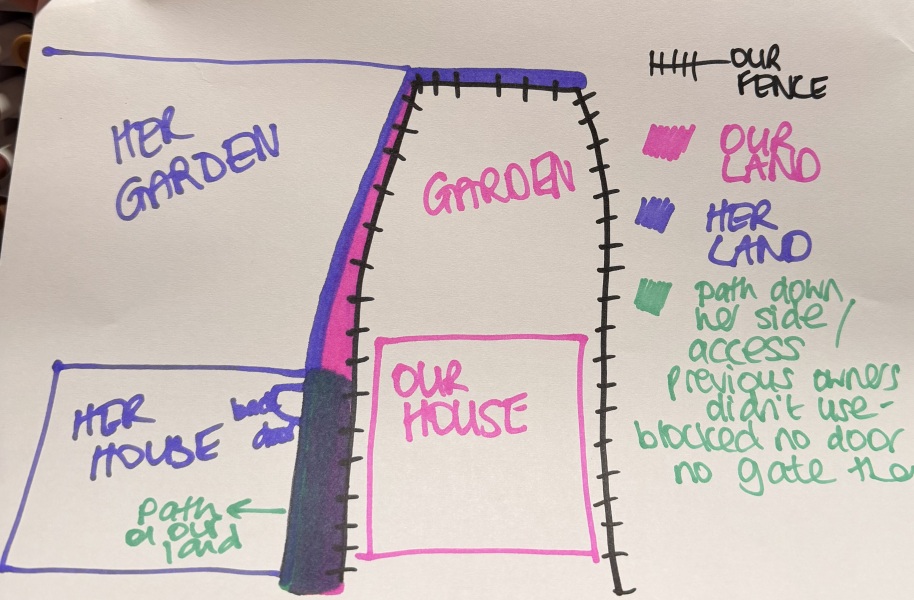 HER
GARDEN
GARDEN
HER
HOUSE
back
door
OUR
HOUSE
path
on our
land
OUR
FENCE
OUR
LAND
HER
LAND
path down
her side/
access
previous owners
didn't use-
blocked no door
no gate